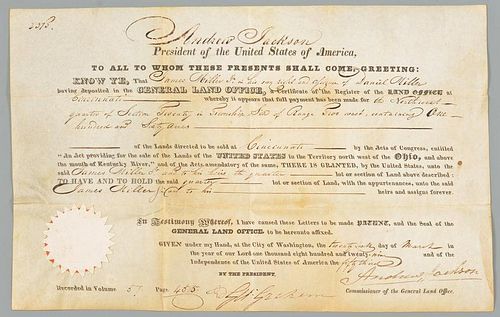 Andrew Jackson
President of the United States of America,
TO ALL TO WHOM THESE PRESENTS SHALL COME, GREETING:
KNOW YE, That James Miller of Daniel Miller
having deposited in the GENERAL LAND OFFICE, a Certificate of the Register of the LAND OFFICE at
Cincinnati whereby it appears that full payment has been made for the Northwest
quarter of Section Twenty in Township of Range west, containing One
hundred and Sixty acres
of the Lands directed to be sold at Cincinnati by the Acts of Congress, entitled
"An Act providing for the sale of the Lands of the UNITED STATES in the Territory north west of the Ohio, and above
the mouth of Kentucky River," and of the Acts amendatory of the same, THERE IS GRANTED, by the United States, unto the
said James Miller and to his heirs the quarter lot or section of Land above described:
TO HAVE AND TO HOLD the said quarter lot or section of Land, with the appurtenances, unto the said
James Miller his heirs and assigns forever.
In Testimony Whereof, I have caused these Letters to be made PATENT, and the Seal of the
GENERAL LAND OFFICE to be hereunto affixed.
GIVEN under my Hand, at the City of Washington, the day of March in
the year of our Lord one thousand eight hundred and twenty-nine and of the
Independence of the United States of America the fifty third
BY THE PRESIDENT, Andrew Jackson
Recorded in Volume Page Graham Commissioner of the General Land Office.